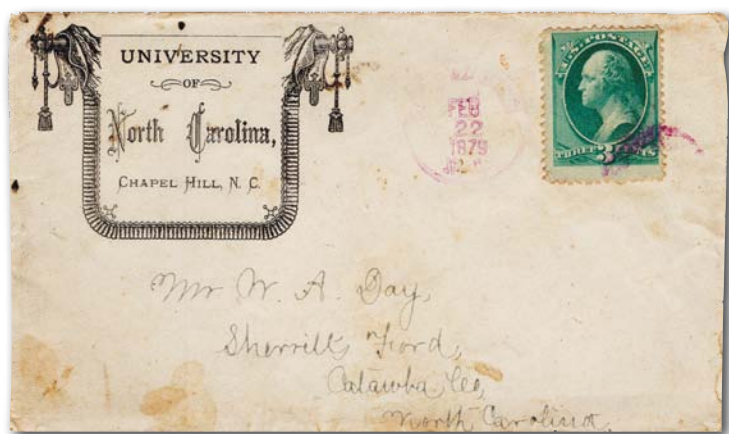 UNIVERSITY
OF
North Carolina,
CHAPEL HILL, N. C.
FEB
22
1879
U.S. POSTAGE
THREE 3 CENTS
Mr W. A. Day,
Sherrills Ford,
Catawba Co,
North Carolina